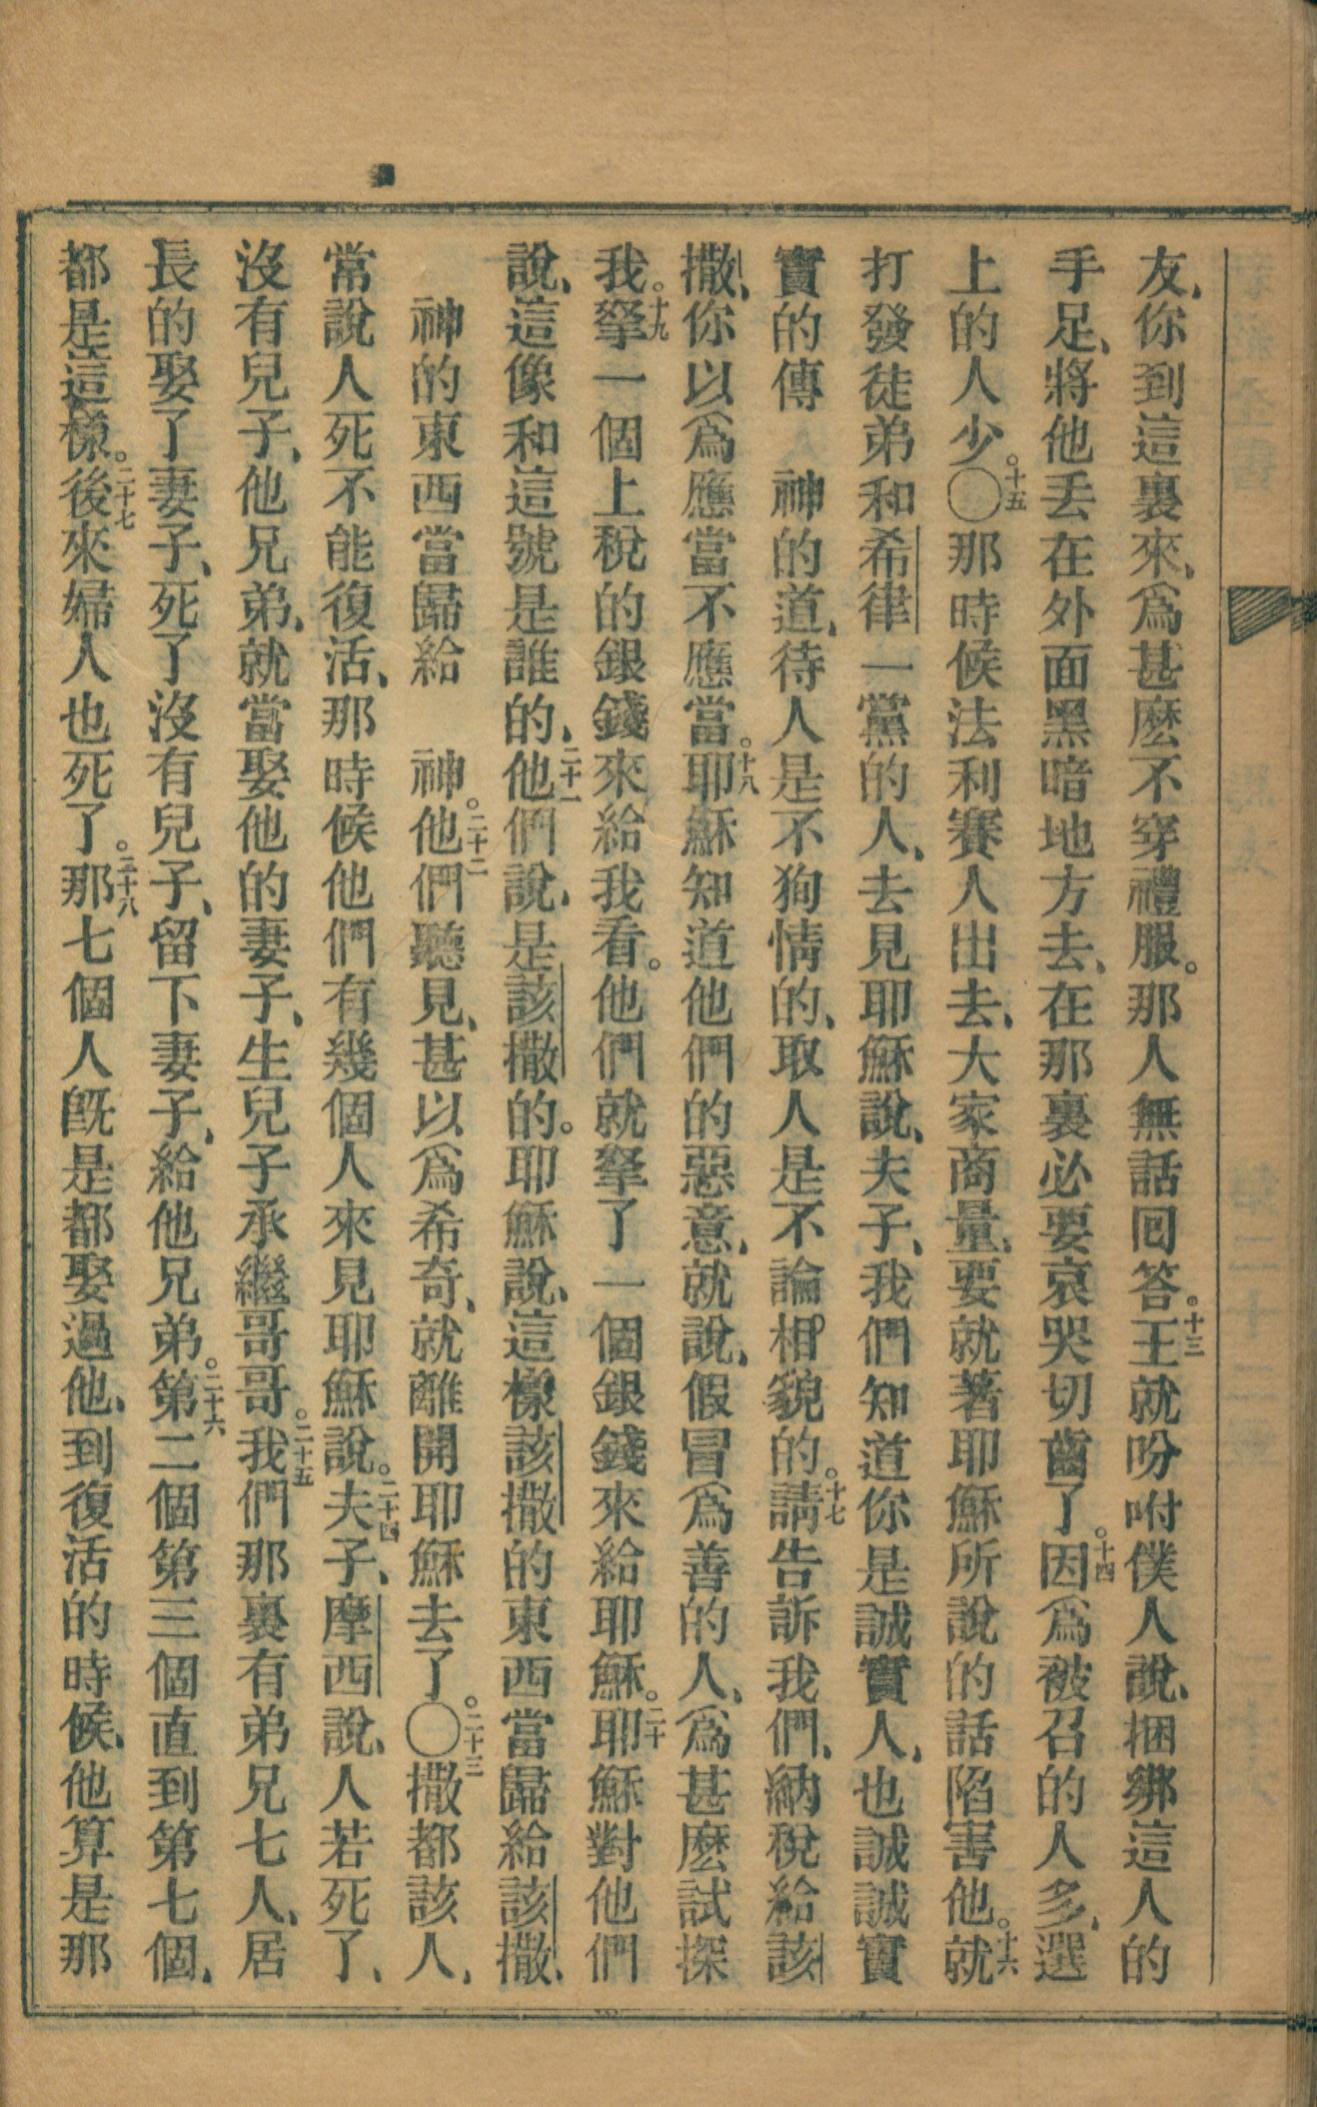 友、你到這裏來、爲甚麽不穿禮服。那人無話回答。十三王就吩咐僕人說、捆綁這人的
手足、將他丟在外面黑暗地方去、在那裏必要哀哭切齒了。十四因爲被召的人多、選
上的人少。十五〇那時候法利賽人出去、大家商量、要就著耶穌所說的話陷害他。十六就
打發徒弟和希律一黨的人、去見耶穌說、夫子、我們知道你是誠實人、也誠誠實
實的傳　神的道、待人是不狥情的、取人是不論相貌的。十七請告訴我們、納稅給該
撒、你以爲應當不應當。十八耶穌知道他們的惡意、就說、假冒爲善的人、爲甚麽試探
我。十九拏一個上稅的銀錢來給我看。他們就拏了一個銀錢來給耶穌。二十耶穌對他們
說、這像和這號是誰的、二十一他們說、是該撒的。耶穌說、這樣該撒的東西當歸給該撒、
神的東西當歸給　神。二十二他們聽見、甚以爲希奇、就離開耶穌去了。二十三〇撒都該人、
常說人死不能復活、那時候他們有幾個人來見耶穌說。二十四夫子、摩西說、人若死了、
沒有兒子、他兄弟、就當娶他的妻子、生兒子承繼哥哥。二十五我們那裏有弟兄七人、居
長的娶了妻子、死了沒有兒子、留下妻子、給他兄弟。二十六第二個第三個直到第七個、
都是這樣。二十七後來婦人也死了。二十八那七個人旣是都娶過他、到復活的時候、他算是那